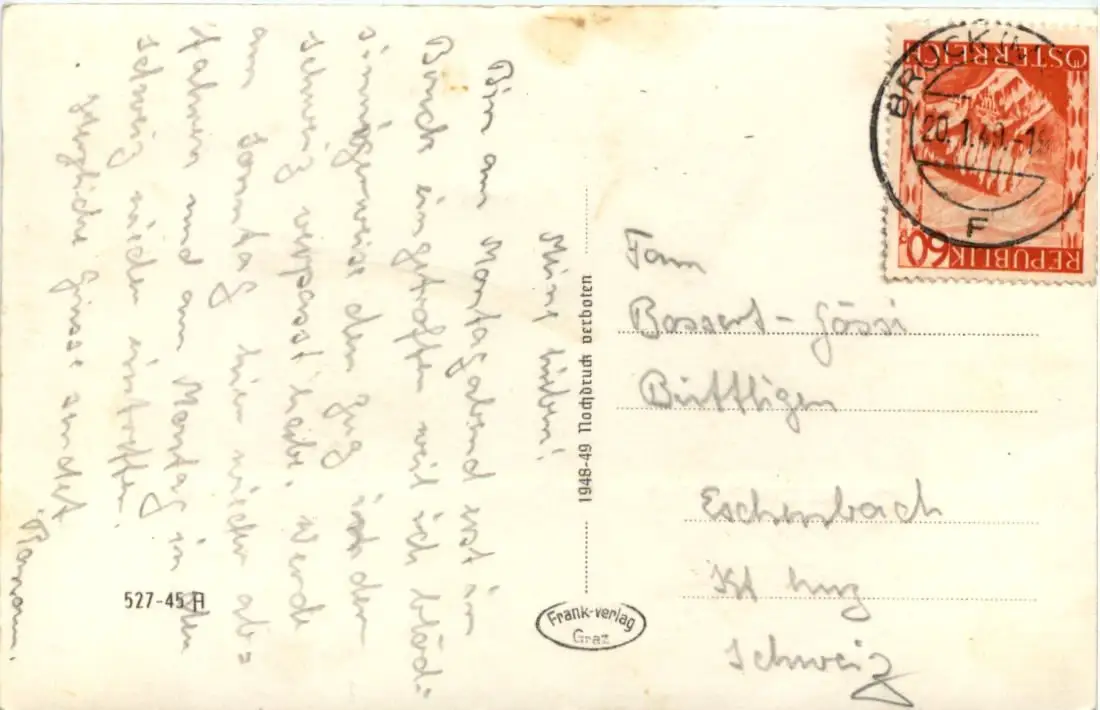 Meine Lieben!
Bin am Montagabend erst in
Bruck eingetroffen weil ich blöd-
sinnigerweise den Zug in der
schweiz verpasst habe. Werde
am Sonntag hier wieder ab=
fahren und am Montag in der
schweiz wieder eintreffen.
Herzliche Grüsse sendet
1948-49 Nachdruck verboten
Frank-verlag
Graz
527-45 A
Fam
Bossert - Gössi
Bütttligen
Eschenbach
Kt Luz
Schweiz
BRUCK
20.1.49
F
ÖSTERREICH
60
REPUBLIK